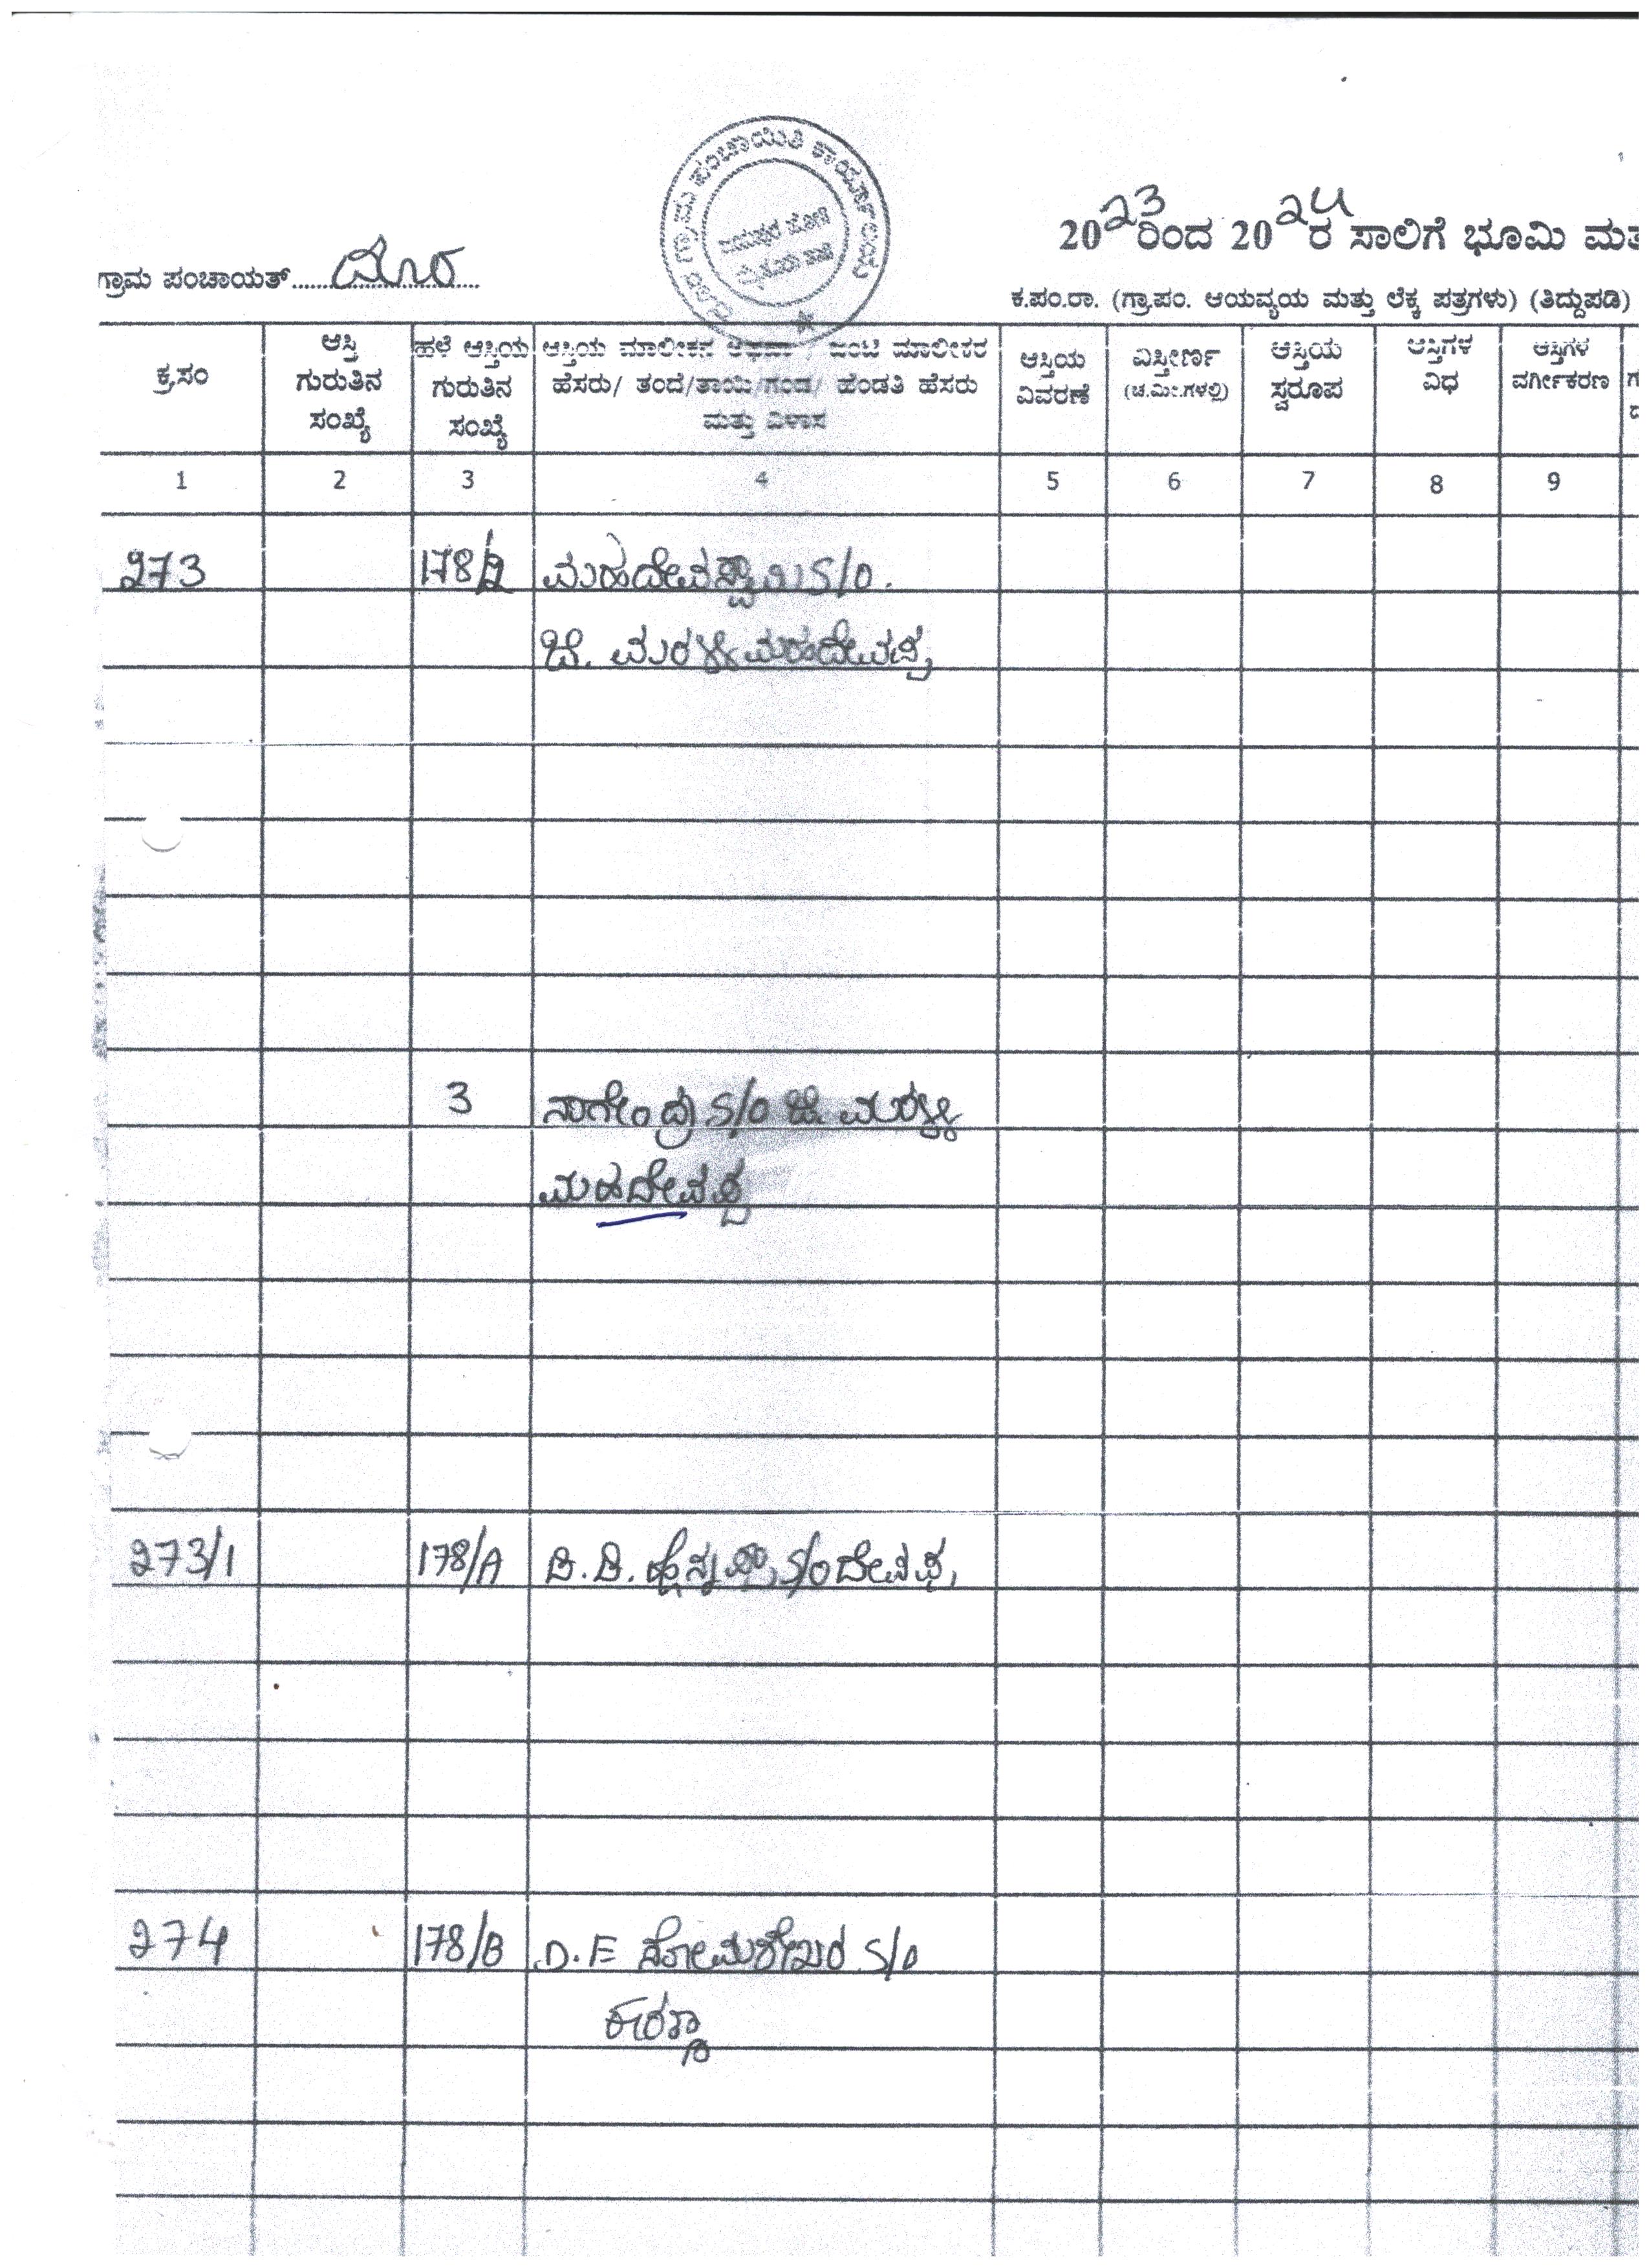 ಗ್ರಾಮ ಪಂಚಾಯಿತಿ ಕಾರ್ಯಾಲಯ
2023ರಿಂದ 2024ರ ಸಾಲಿಗೆ ಭೂಮಿ ಮತ
ಗ್ರಾಮ ಪಂಚಾಯತ್.....ದೂರ
ಕ.ಪಂ.ರಾ. (ಗ್ರಾ.ಪಂ. ಆಯವ್ಯಯ ಮತ್ತು ಲೆಕ್ಕ ಪತ್ರಗಳು) (ತಿದ್ದುಪಡಿ)
ಕ್ರಸಂ
ಆಸ್ತಿ
ಗುರುತಿನ
ಸಂಖ್ಯೆ
ಹಳೆ ಆಸ್ತಿಯ
ಗುರುತಿನ
ಸಂಖ್ಯೆ
ಆಸ್ತಿಯ ಮಾಲೀಕನ ಅಥವಾ / ಜಂಟಿ ಮಾಲೀಕರ
ಹೆಸರು/ ತಂದೆ/ತಾಯಿ/ಗಂಡ/ ಹೆಂಡತಿ ಹೆಸರು
ಮತ್ತು ವಿಳಾಸ
ಆಸ್ತಿಯ
ವಿವರಣೆ
ವಿಸ್ತೀರ್ಣ
(ಚ.ಮೀ.ಗಳಲ್ಲಿ)
ಆಸ್ತಿಯ
ಸ್ವರೂಪ
ಆಸ್ತಿಗಳ
ವಿಧ
ಆಸ್ತಿಗಳ
ವರ್ಗೀಕರಣ
1 2 3 4 5 6 7 8 9
273 178/2 ಮಹದೇವಸ್ವಾಮಿ S/O.
ಜೆ. ಮರಳ್ಳಿ ಮಹದೇವಪ್ಪ
3 ನಾಗೇಂದ್ರ S/O ಜೆ ಮರಳ್ಳಿ
ಮಹದೇವಪ್ಪ
273/1 178/A ಡಿ.ಡಿ. S/O ದೇವಪ್ಪ
274 178/B D.E ಸೋಮಶೇಖರ S/O
ಈರಣ್ಣ